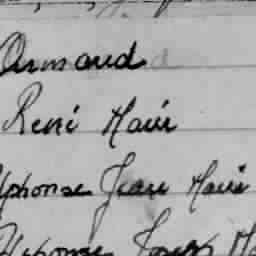 Armand
René Marie
Alphonse Jean Marie
Alphonse Joseph Ma